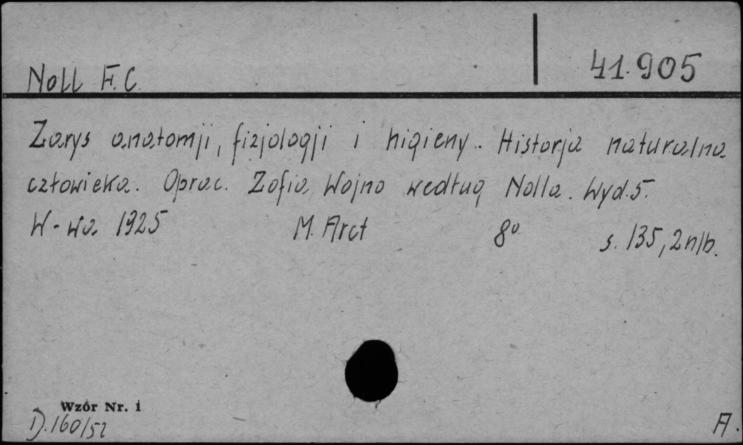 Noll F.C. 41.905
Zarys anatomji, fizjologji i higieny.. Historja naturalna
człowieka. Oprac. Zofia Wojno według Nolla. Wyd.5.
W-wa 1925 M. Arct 8° s. 135, 2 nlb.
Wzór Nr. 1
D.160/52 A.